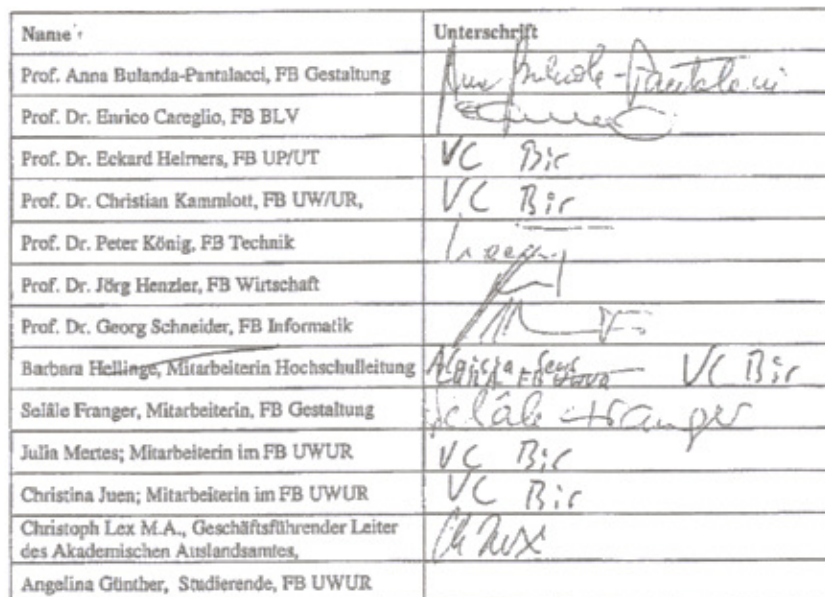 Name Unterschrift
Prof. Anna Bulanda-Pantalacci, FB Gestaltung
Prof. Dr. Enrico Careglio, FB BLV
Prof. Dr. Eckard Helmers, FB UP/UT VC Bir
Prof. Dr. Christian Kammlott, FB UW/UR, VC Bir
Prof. Dr. Peter König, FB Technik
Prof. Dr. Jörg Henzler, FB Wirtschaft
Prof. Dr. Georg Schneider, FB Informatik
Barbara Hellinge, Mitarbeiterin Hochschulleitung VC Bir
Selâle Franger, Mitarbeiterin, FB Gestaltung Selâle Franger
Julia Mertes; Mitarbeiterin im FB UWUR VC Bir
Christina Juen; Mitarbeiterin im FB UWUR VC Bir
Christoph Lex M.A., Geschäftsführender Leiter
des Akademischen Auslandsamtes, Ch Lex
Angelina Günther, Studierende, FB UWUR